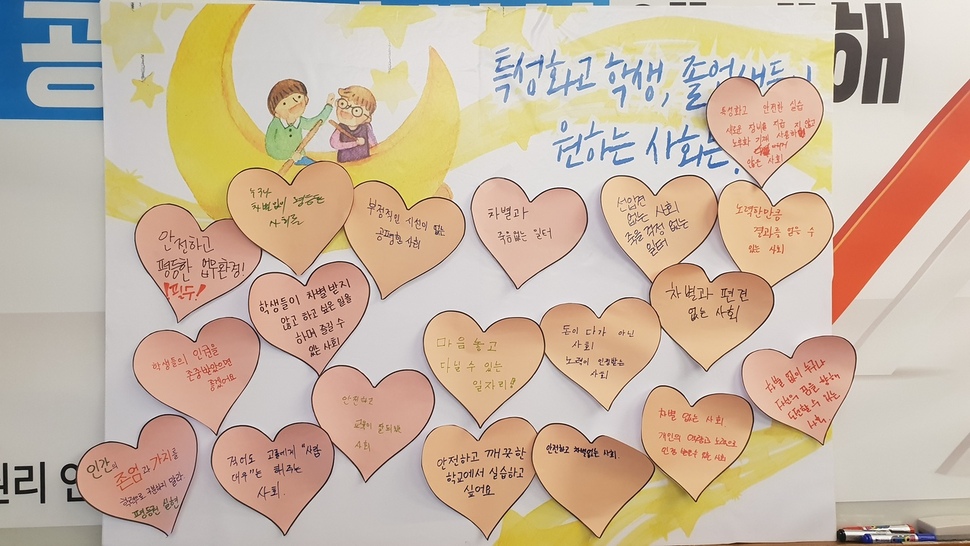 공
해
특성화고 학생, 졸업생들이
원하는 사회는?
특성화고 안전한 실습
새로운 장비를 지급
노후화 기계 사용하
않은 사회
누구나
차별없이 평등한
사회를
부정적인 시선이 없는
공평한 사회
차별과
죽음없는 일터
선입견
없는 사회
죽을 걱정 없는
일터
노력한만큼
결과를 얻을 수
있는 사회
안전하고
평등한 업무환경!
필수!
학생들이 차별받지
않고 하고 싶은 일을
하며 즐길 수
있는 사회
차별과 편견
없는 사회
학생들의 인권을
존중받았으면
좋겠어요
마음 놓고
다닐 수 있는
일자리!
돈이 다가 아닌
사회
노력이 인정받는
사회
차별 없이 누구나
자신의 꿈을 향해
도전할 수 있는
사회
안전하고
사회
차별 없는 사회
개인의 노력으로
인정 받을 수 있는 사회
인간의
존엄과 가치를
평등권 실현
적어도 고졸에게 "사람
대우"는 해주는
사회.
안전하고 깨끗한
학교에서 실습하고
싶어요
안전하고 차별없는 사회.
권리